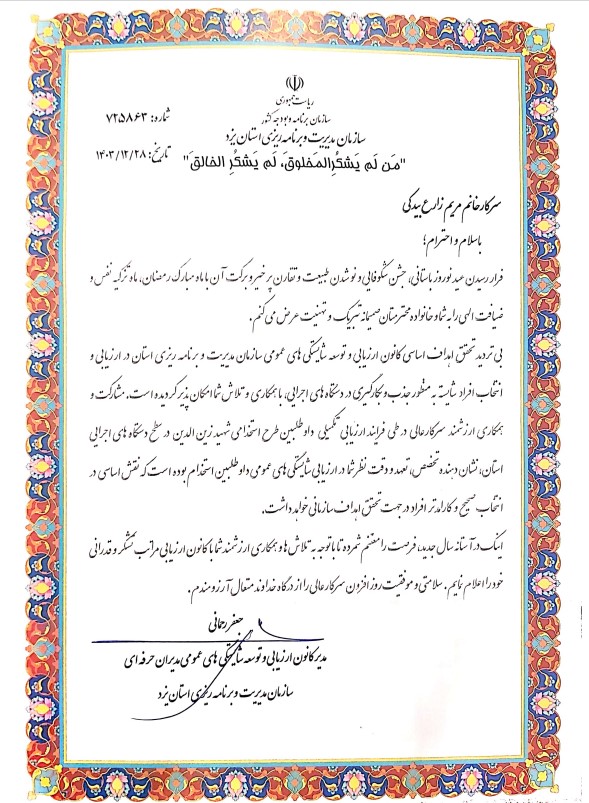 ریاست جمهوری
سازمان برنامه و بودجه کشور
سازمان مدیریت و برنامه ریزی استان یزد
شماره: ۷۲۵۸۶۳
تاریخ: ۱۴۰۳/۱۲/۲۸
"مَن لَم یَشکُرِالمَخلوق، لَم یَشکُرِ الخالِقَ"
سرکارخانم مریم زارع بیدکی
باسلام و احترام؛
فرا رسیدن عید نوروز باستانی، جشن شکوفایی و نو شدن طبیعت و تقارن پر خیر و برکت آن با ماه مبارک رمضان، ماه تزکیه نفس و
ضیافت الهی را به شما و خانواده محترمتان صمیمانه تبریک و تهنیت عرض می کنم.
بی تردید تحقق اهداف اساسی کانون ارزیابی و توسعه شایستگی های عمومی سازمان مدیریت و برنامه ریزی استان در ارزیابی و
انتخاب افراد شایسته به منظور جذب و بکارگیری در دستگاه های اجرایی، با همکاری و تلاش شما امکان پذیر گردیده است. مشارکت و
همکاری ارزشمند سرکارعالی در طی فرایند ارزیابی تکمیلی داوطلبین طرح استخدامی شهید زین الدین در سطح دستگاه های اجرایی
استان، نشان دهنده تخصص، تعهد و دقت نظر شما در ارزیابی شایستگی های عمومی داوطلبین استخدام بوده است که نقش اساسی در
انتخاب صحیح و کارآمدتر افراد در جهت تحقق اهداف سازمانی خواهد داشت.
اینک در آستانه سال جدید، فرصت را مغتنم شمرده تا با توجه به تلاش ها و همکاری ارزشمند شما با کانون ارزیابی مراتب تشکر و قدردانی
خود را اعلام نمایم. سلامتی و موفقیت روز افزون سرکارعالی را از درگاه خداوند متعال آرزومندم.
جعفر رحمانی
مدیر کانون ارزیابی و توسعه شایستگی های عمومی مدیران حرفه ای
سازمان مدیریت و برنامه ریزی استان یزد